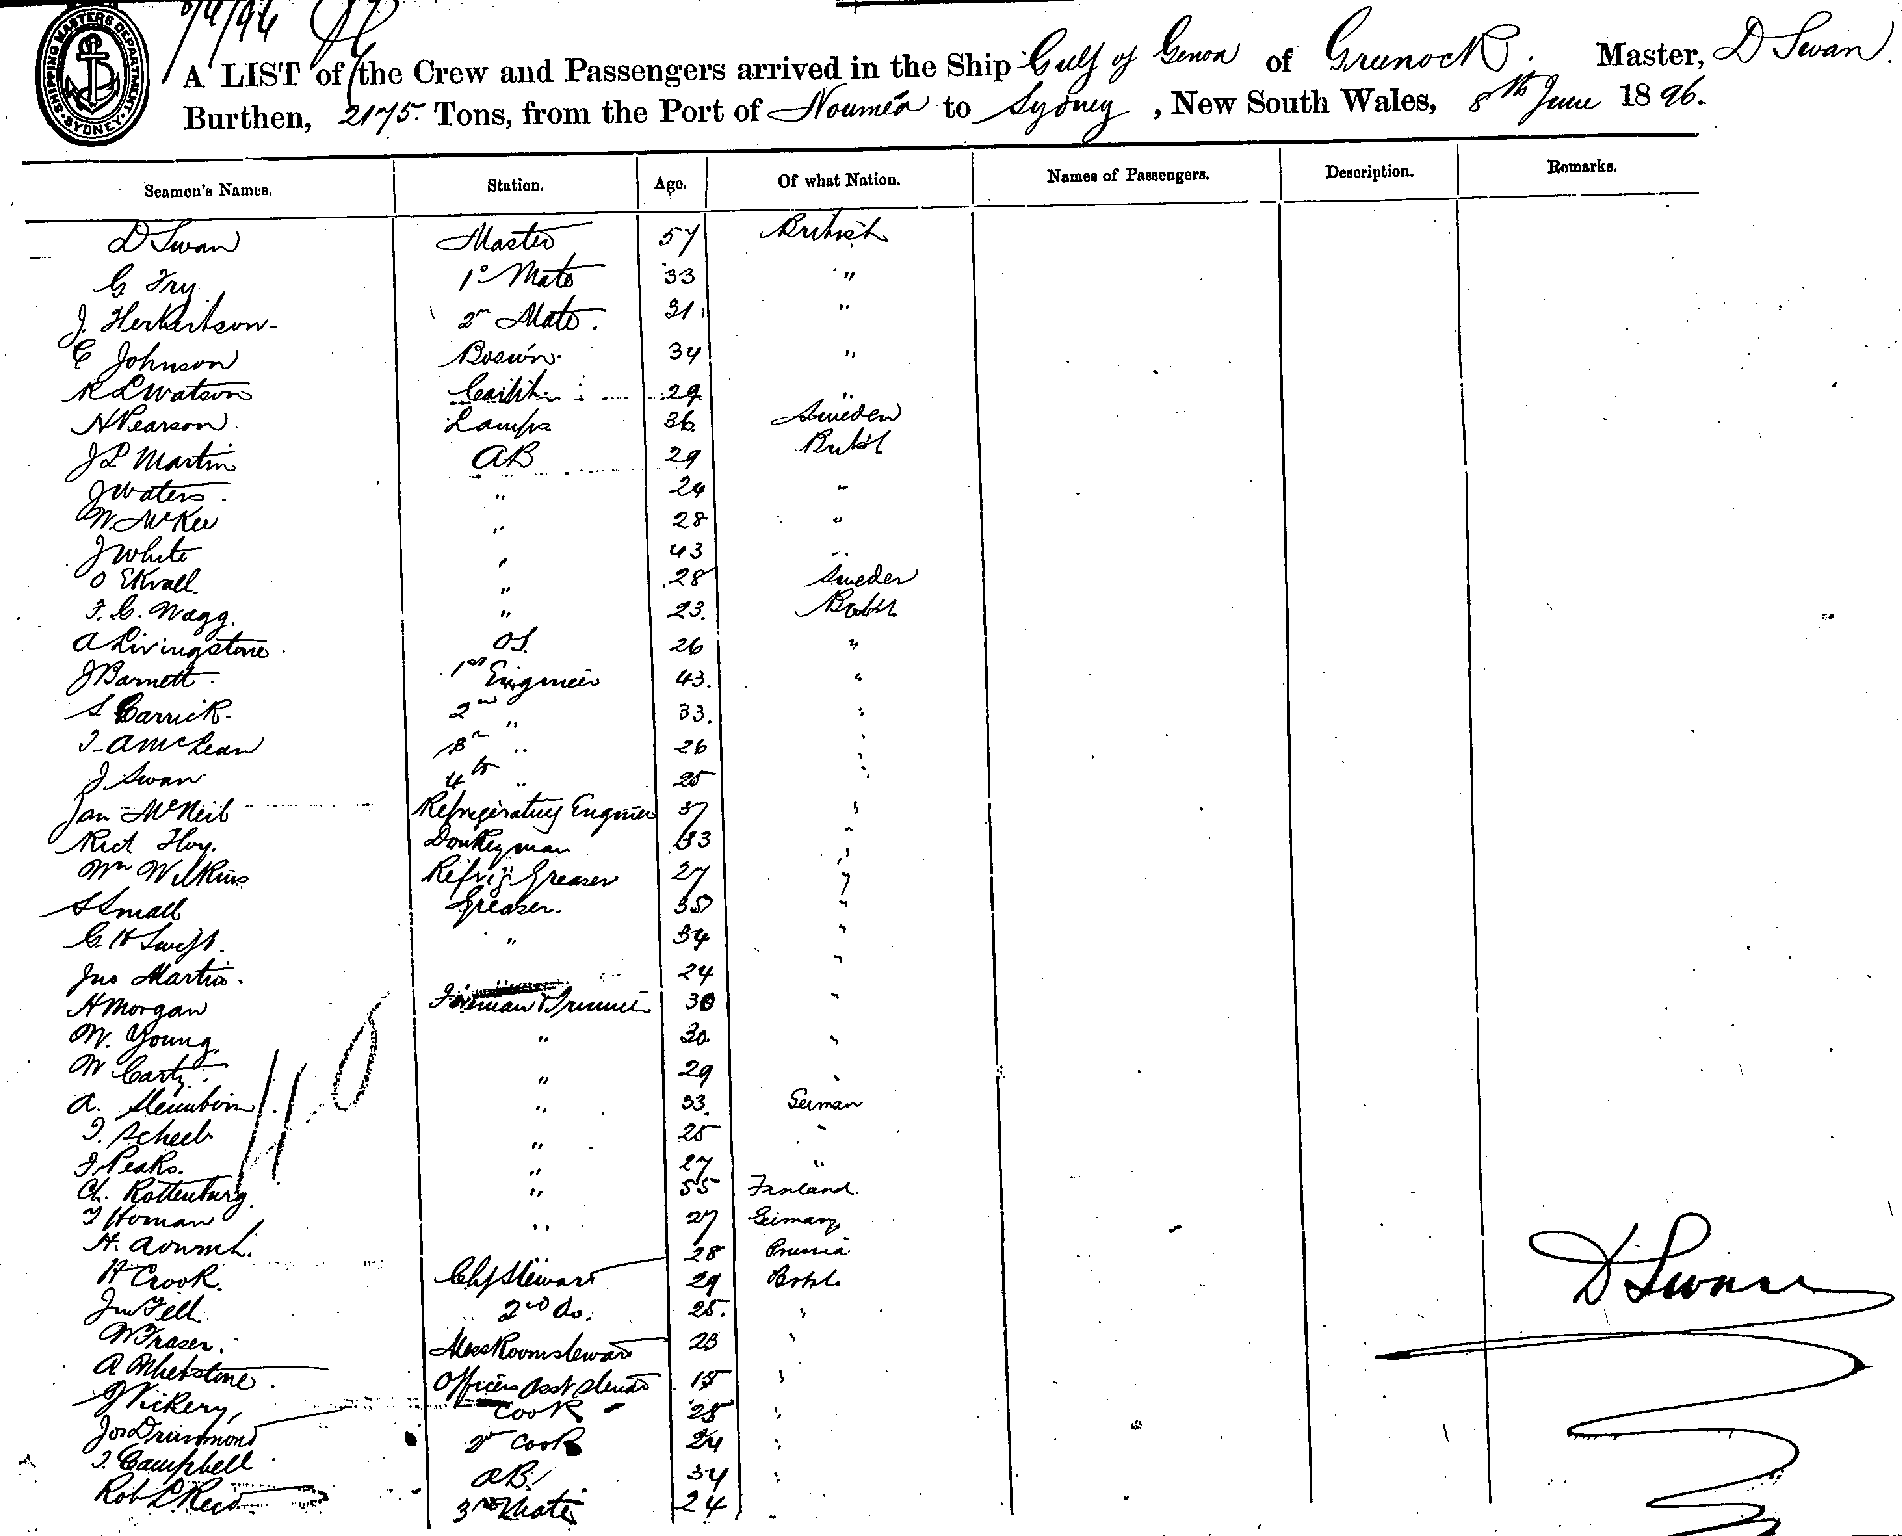 8/4/96
SHIPPING MASTERS DEPARTMENT SYDNEY
A LIST of the Crew and Passengers arrived in the Ship Gulf of Genoa of Greenock. Master, D Swan
Burthen, 2175 Tons, from the Port of Nouméa to Sydney, New South Wales, 8th June 1896.
Seamen's Names. Station. Age. Of what Nation. Names of Passengers. Description. Remarks.
D Swan Master 57 British
G Fry 1o Mate 33 "
J. Herkertson 2n Mate. 31 "
C Johnson Bosw'n 34 "
R L Watson 29 "
N Pearson Lamps 36 Sweden
J L Martin AB 29 Britsh
J Waters " 24 "
W McKee " 28 "
J White " 43 "
O Ekvall " 28 Sweden
F. C. Wagg. " 23. Britsh
A Livingstone OS. 26 "
J Barnett 1st Engineer 43. "
S Carrick 2nd " 33. "
J A McLean 3rd " 26 "
J Swan 4th " 25 "
Jan McNeil Refrigerating Engineer 37 "
Rich Hoy. Donkeyman 33 "
Wm Wilkins Refrig Greaser 27 "
S Small Greaser. 35 "
C H Swift. " 34 "
Jno Martin. 24 "
H Morgan Fireman & Trimmer 30 "
W. Young. " 30 "
W Carty. " 29 "
A. " 33. German
J. Scheeb " 25 "
J Peaks. " 27 "
Ch. Rottenburg. " 55 Finland
J Homan " 27 Germany
H. 28 Prussia
H Crook. Chf Steward 29 Britsh
Jno Fell 2nd do. 25. "
W Fraser. Mess Room steward 23 "
A Whetstone Officers Asst Steward 15 "
J Vickery, Cook 25 "
Jos Drummond 2n Cook 24 "
J. Campbell AB. 34 "
Rob L. Reid 3rd Mate 24
D Swan